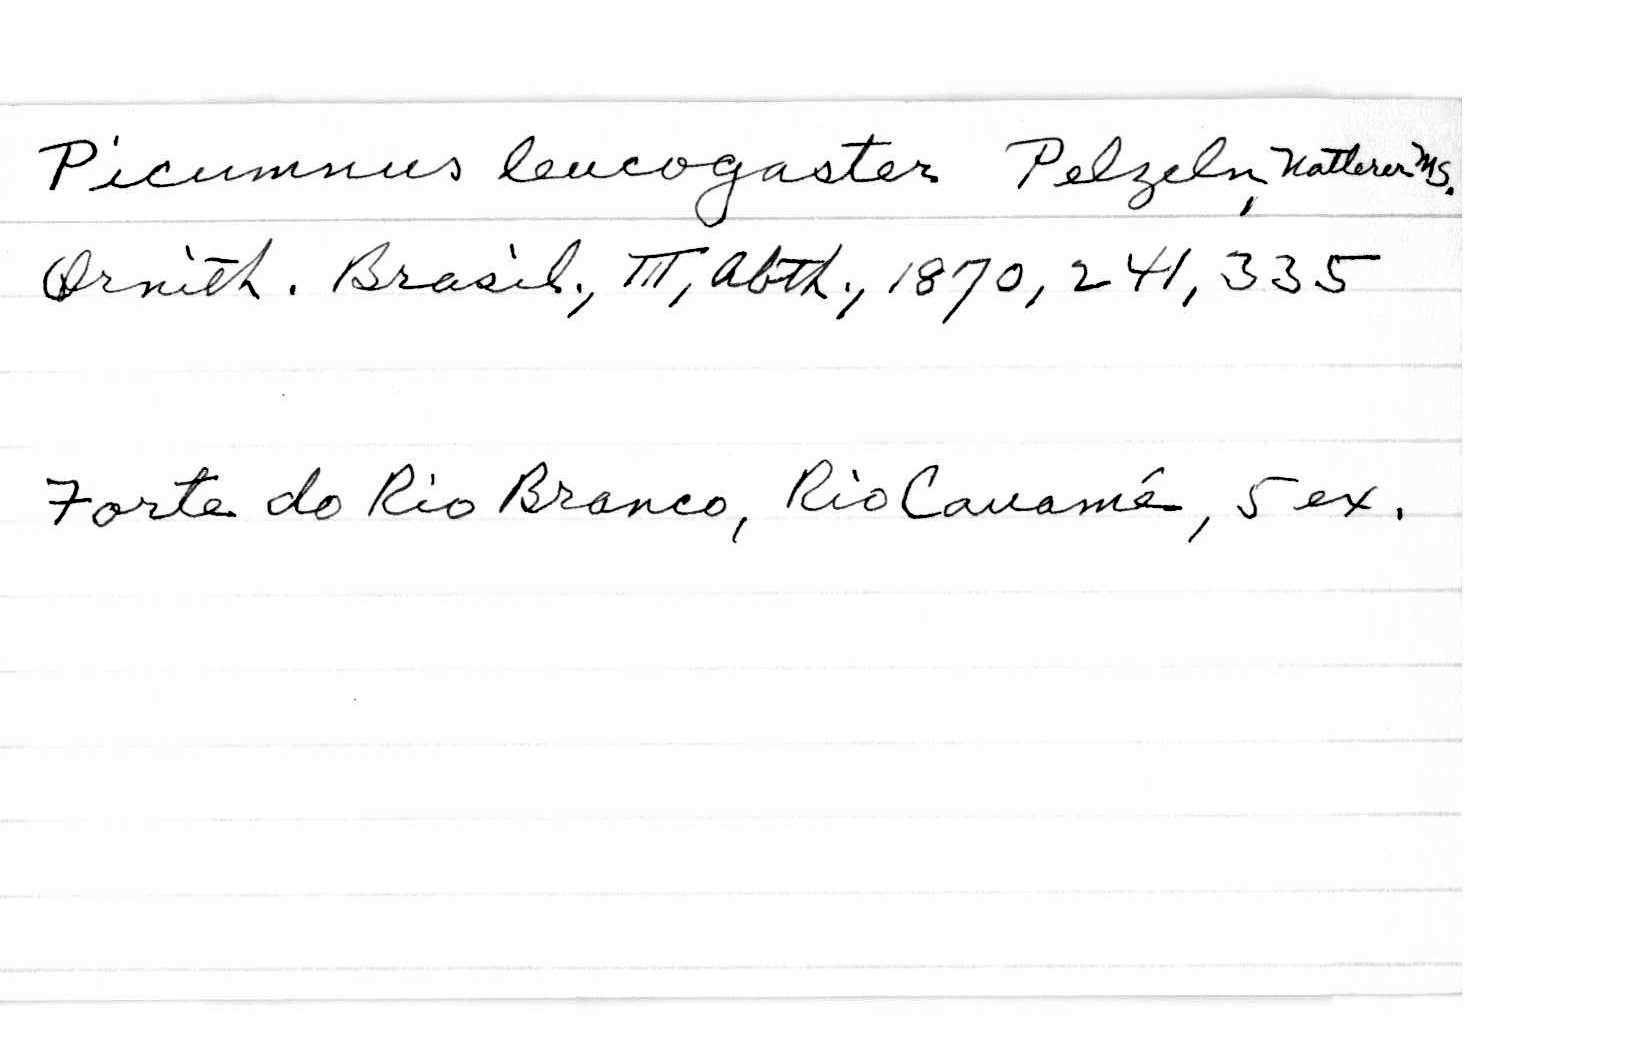 Picumnus leucogaster Pelzeln, Natterer MS.
Ornith. Brasil., III, Abth., 1870, 241, 335
Forte do Rio Branco, Rio Cauamé, 5 ex.